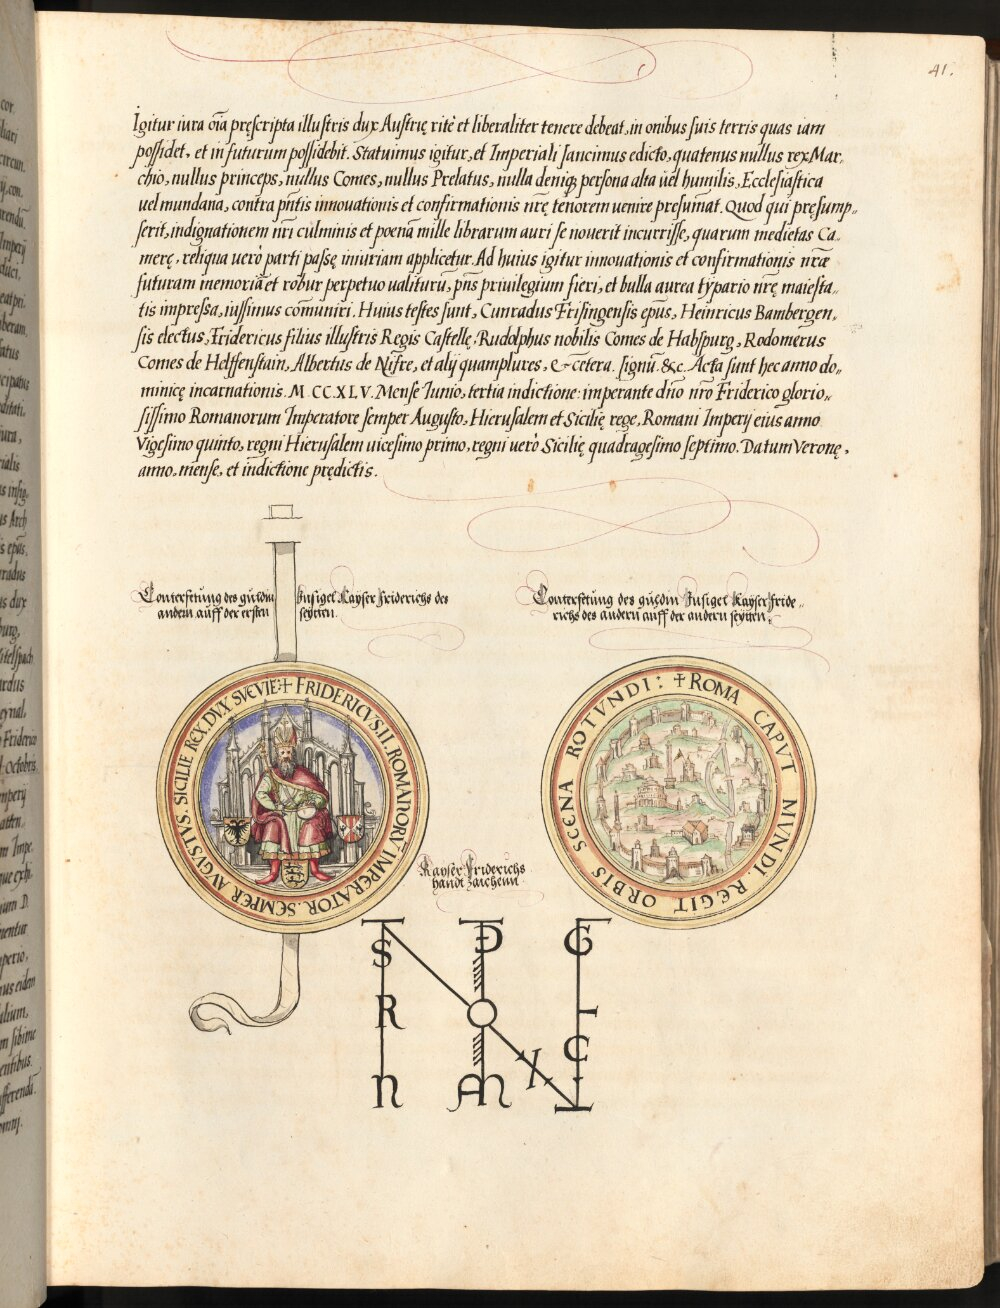 41.
Igitur iura oia pręscripta illustris dux Austrię ritè et liberaliter tenere debeat, in onibus suis terris quas iam
possidet, et in futurum possidebit. Statuimus igitur, et Imperiali sancimus edicto, quatenus nullus rex Mar„
chio, nullus princeps, nullus Comes, nullus Prelatus, nulla deniq, persona alta uel humilis, Ecclesiastica
uel mundana, contra pntis innouationis et confirmationis nrę tenorem uenire presumat. Quod qui pręsump„
serit, indignationem nri culminis et poenā mille librarum auri se nouerit incurrisse, quarum medietas Ca„
merę, reliqua uerò parti passę iniuriam applicetur. Ad huius igitur innouationis et confirmationis nræ
futuram memoriā et robur perpetuo ualiturū, pns priuilegium fieri, et bulla aurea typario nrę maiesta„
tis impressa, iussimus comuniri. Huius testes sunt, Cunradus Frisingensis epus, Heinricus Bambergen„
sis electus, Fridericus filius illustris Regis Castellę, Rudolphus nobilis Comes de Habspurg, Rodomerus
Comes de Helffenstain, Albertus de Nifre, et alij quamplures, &cetera. signū. &c. Acta sunt hec anno do„
minicę incarnationis. M CCXLV. Mense Iunio, tertia indictione: imperante dno nro Friderico glorio„
sissimo Romanorum Imperatore semper Augusto, Hierusalem et Sicilię rege, Romani Imperij eius anno
Vigesimo quinto, regni Hierusalem uicesimo primo, regni uerò Sicilię quadragesimo septimo. Datum Veronę,
anno, mense, et indictione prędictis.
Conterfetung des guldin Insigel Kayser Friderichs des
andern auff der ersten seytten.
Conterfetung des guldin Insigel Kayser Fride„
richs des andern auff der andern seytten.
✝ FRIDERICVS. II. ROMANORV IMPERATOR. SEMPER AVGVSTVS. SICILIE REX. DVX SVEVIE:
✝ ROMA CAPVT MVNDI. REGIT ORBIS SCENA ROTVNDI:
Kayser Friderichs
handt zaichenn
S D G
R O I
C
X
N M I